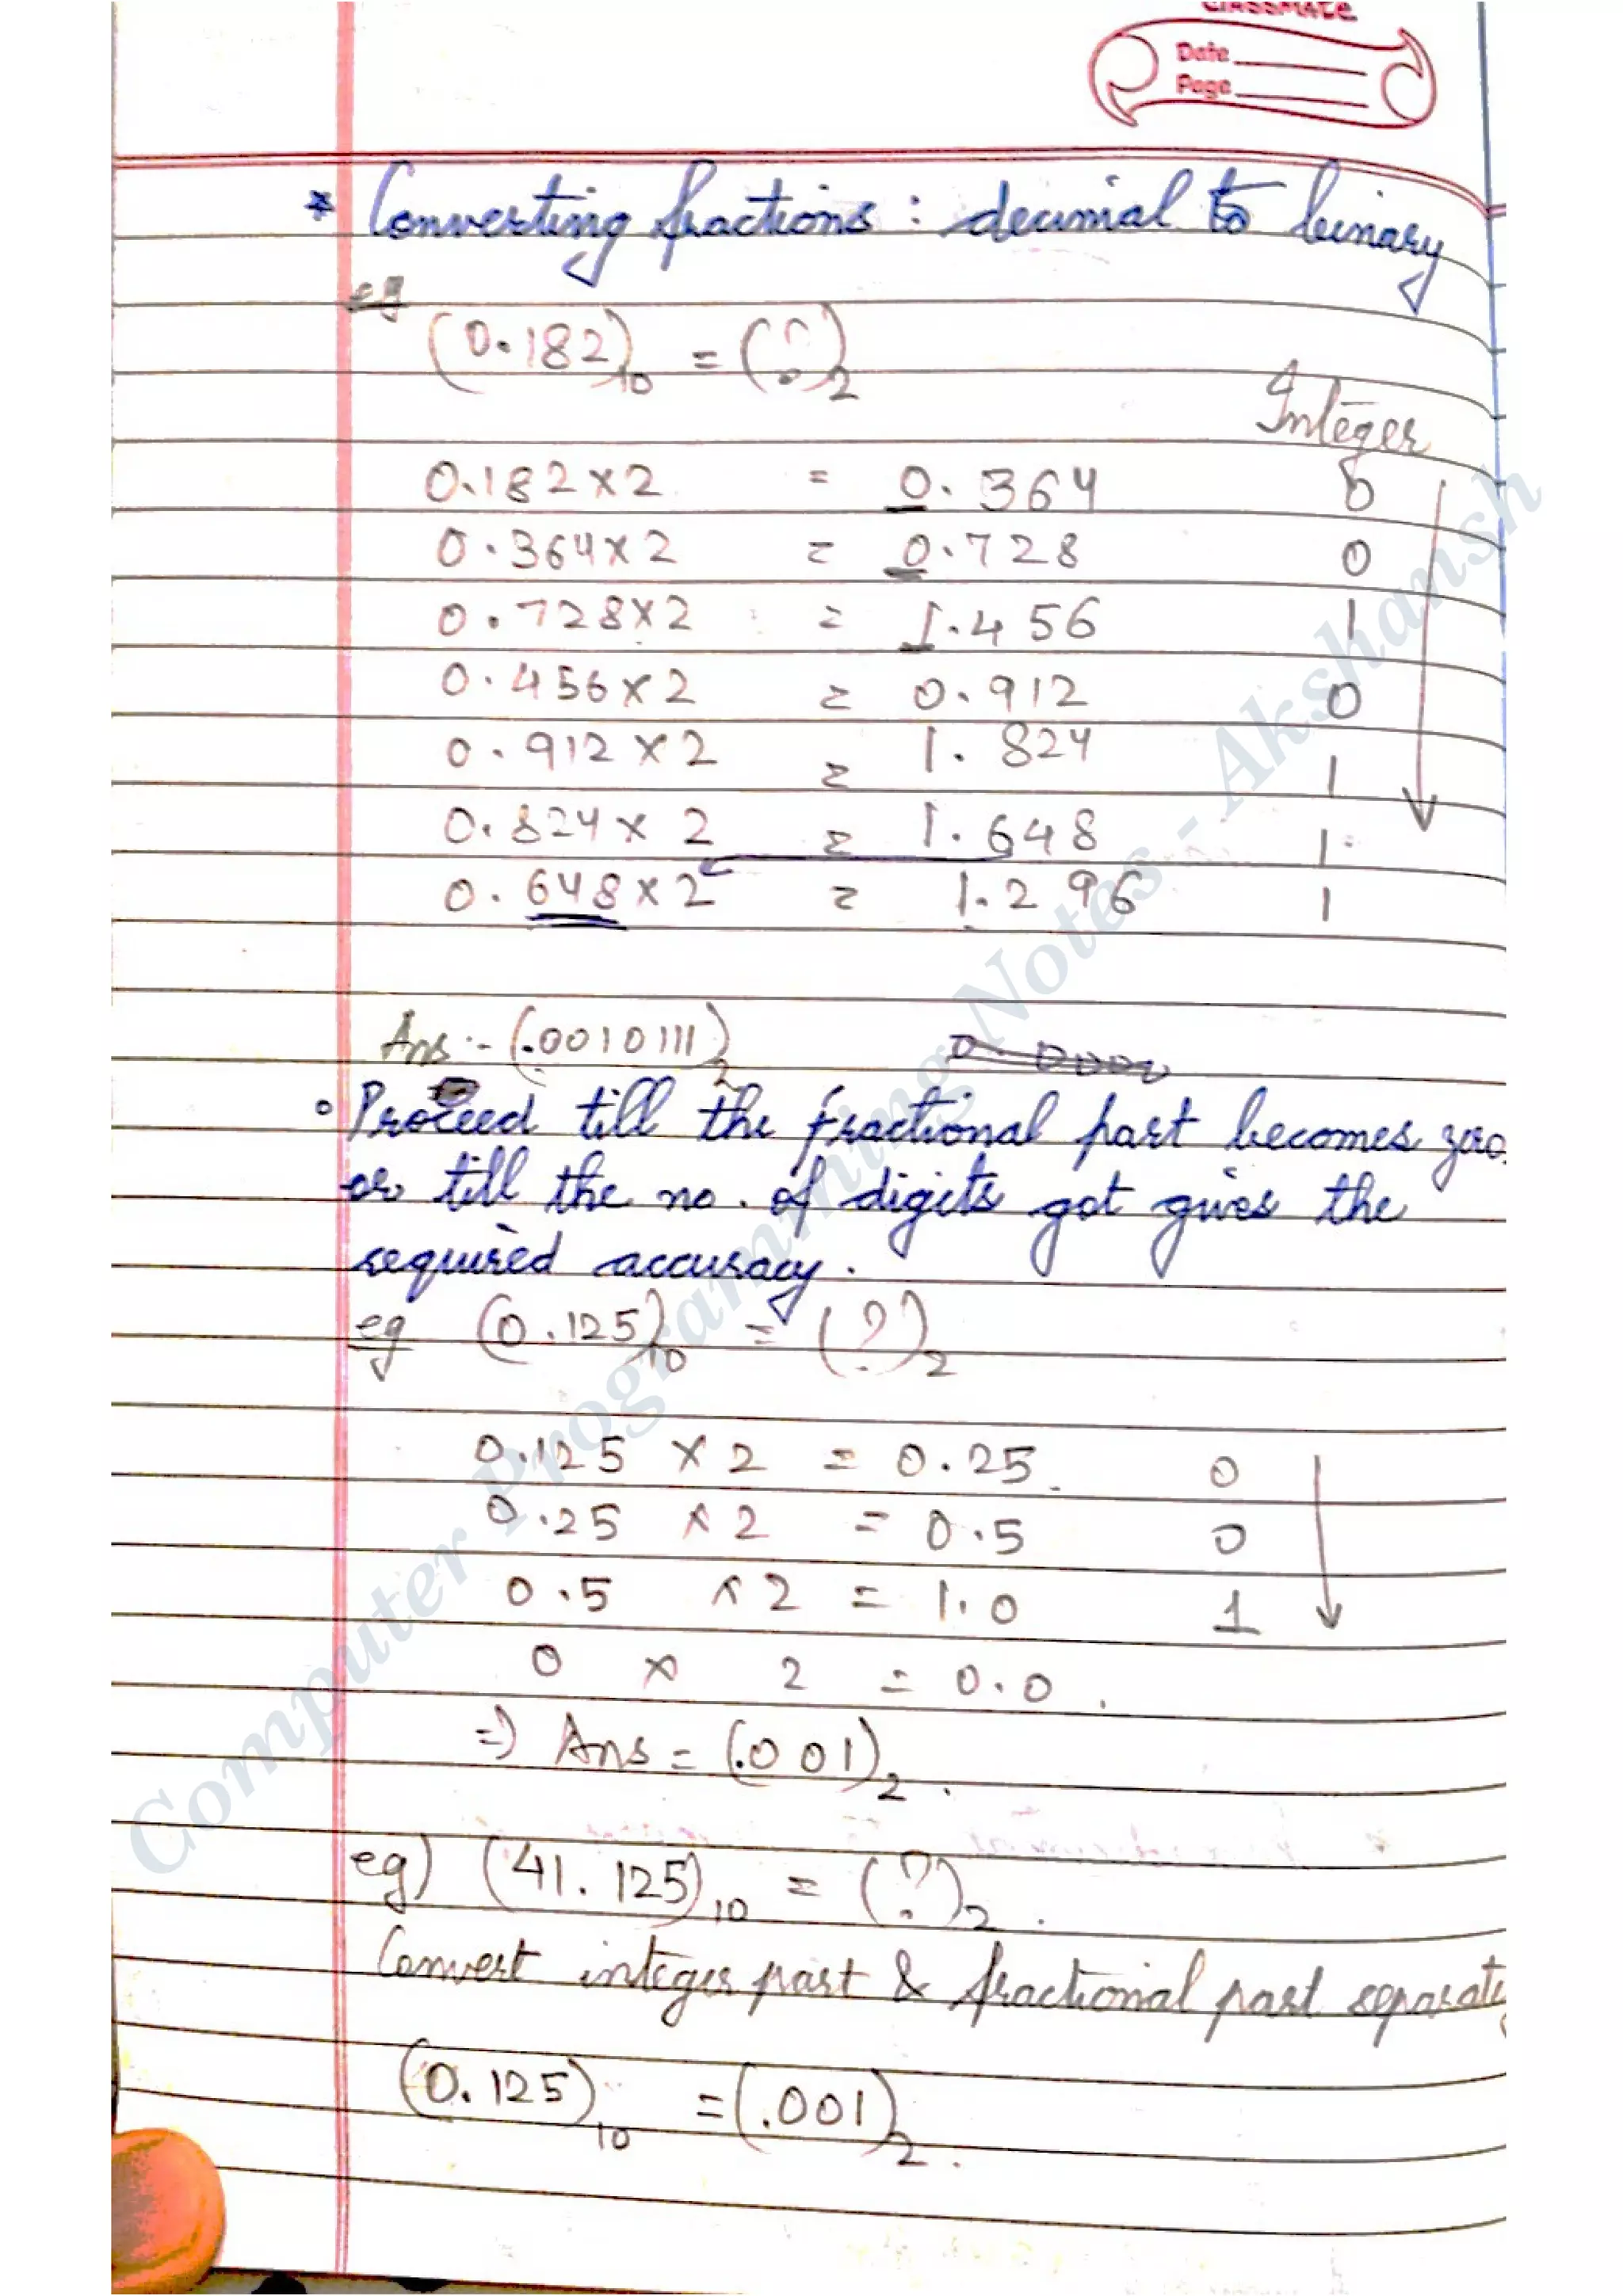 classmate
Date
Page
* Converting fractions : decimal to binary
eg
(0.182)10 = (?)2
Integer
0.182×2 = 0.364 0
0.364×2 = 0.728 0
0.728×2 = 1.456 1
0.456×2 = 0.912 0
0.912×2 = 1.824 1
0.824×2 = 1.648 1
0.648×2 = 1.296 1
Ans :- (.0010111)2
• Proceed till the fractional part becomes zero
or till the no. of digits got gives the
required accuracy.
eg (0.125)10 = (?)2
0.125 × 2 = 0.25 0
0.25 × 2 = 0.5 0
0.5 × 2 = 1.0 1
0 × 2 = 0.0 .
=) Ans = (.001)2 .
eg) (41.125)10 = (?)2 .
Convert integer part & fractional part separate
(0.125)10 = (.001)2 .
Computer Programming Notes - Akshansh